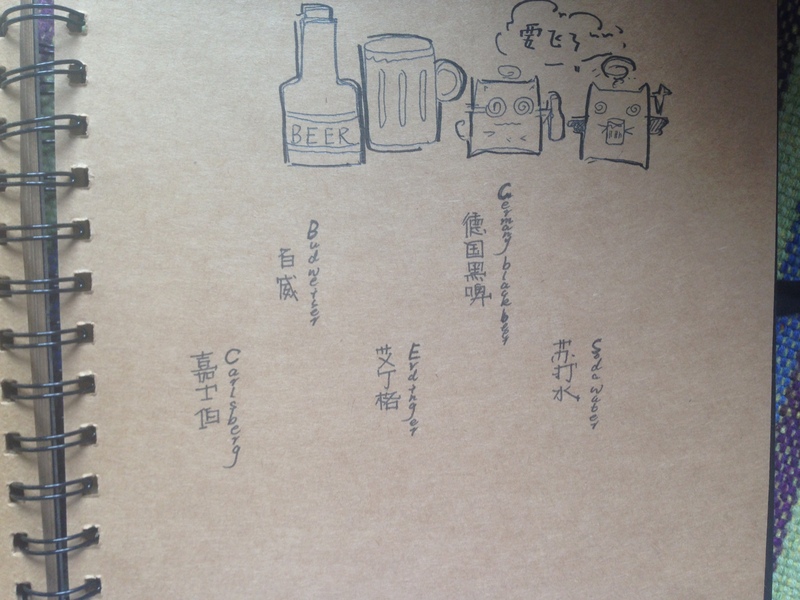 要飞了~~
BEER
Germany blackber
德国黑啤
Budweiser
百威
Carlsberg
嘉士伯
Erdinger
艾丁格
Soda water
苏打水